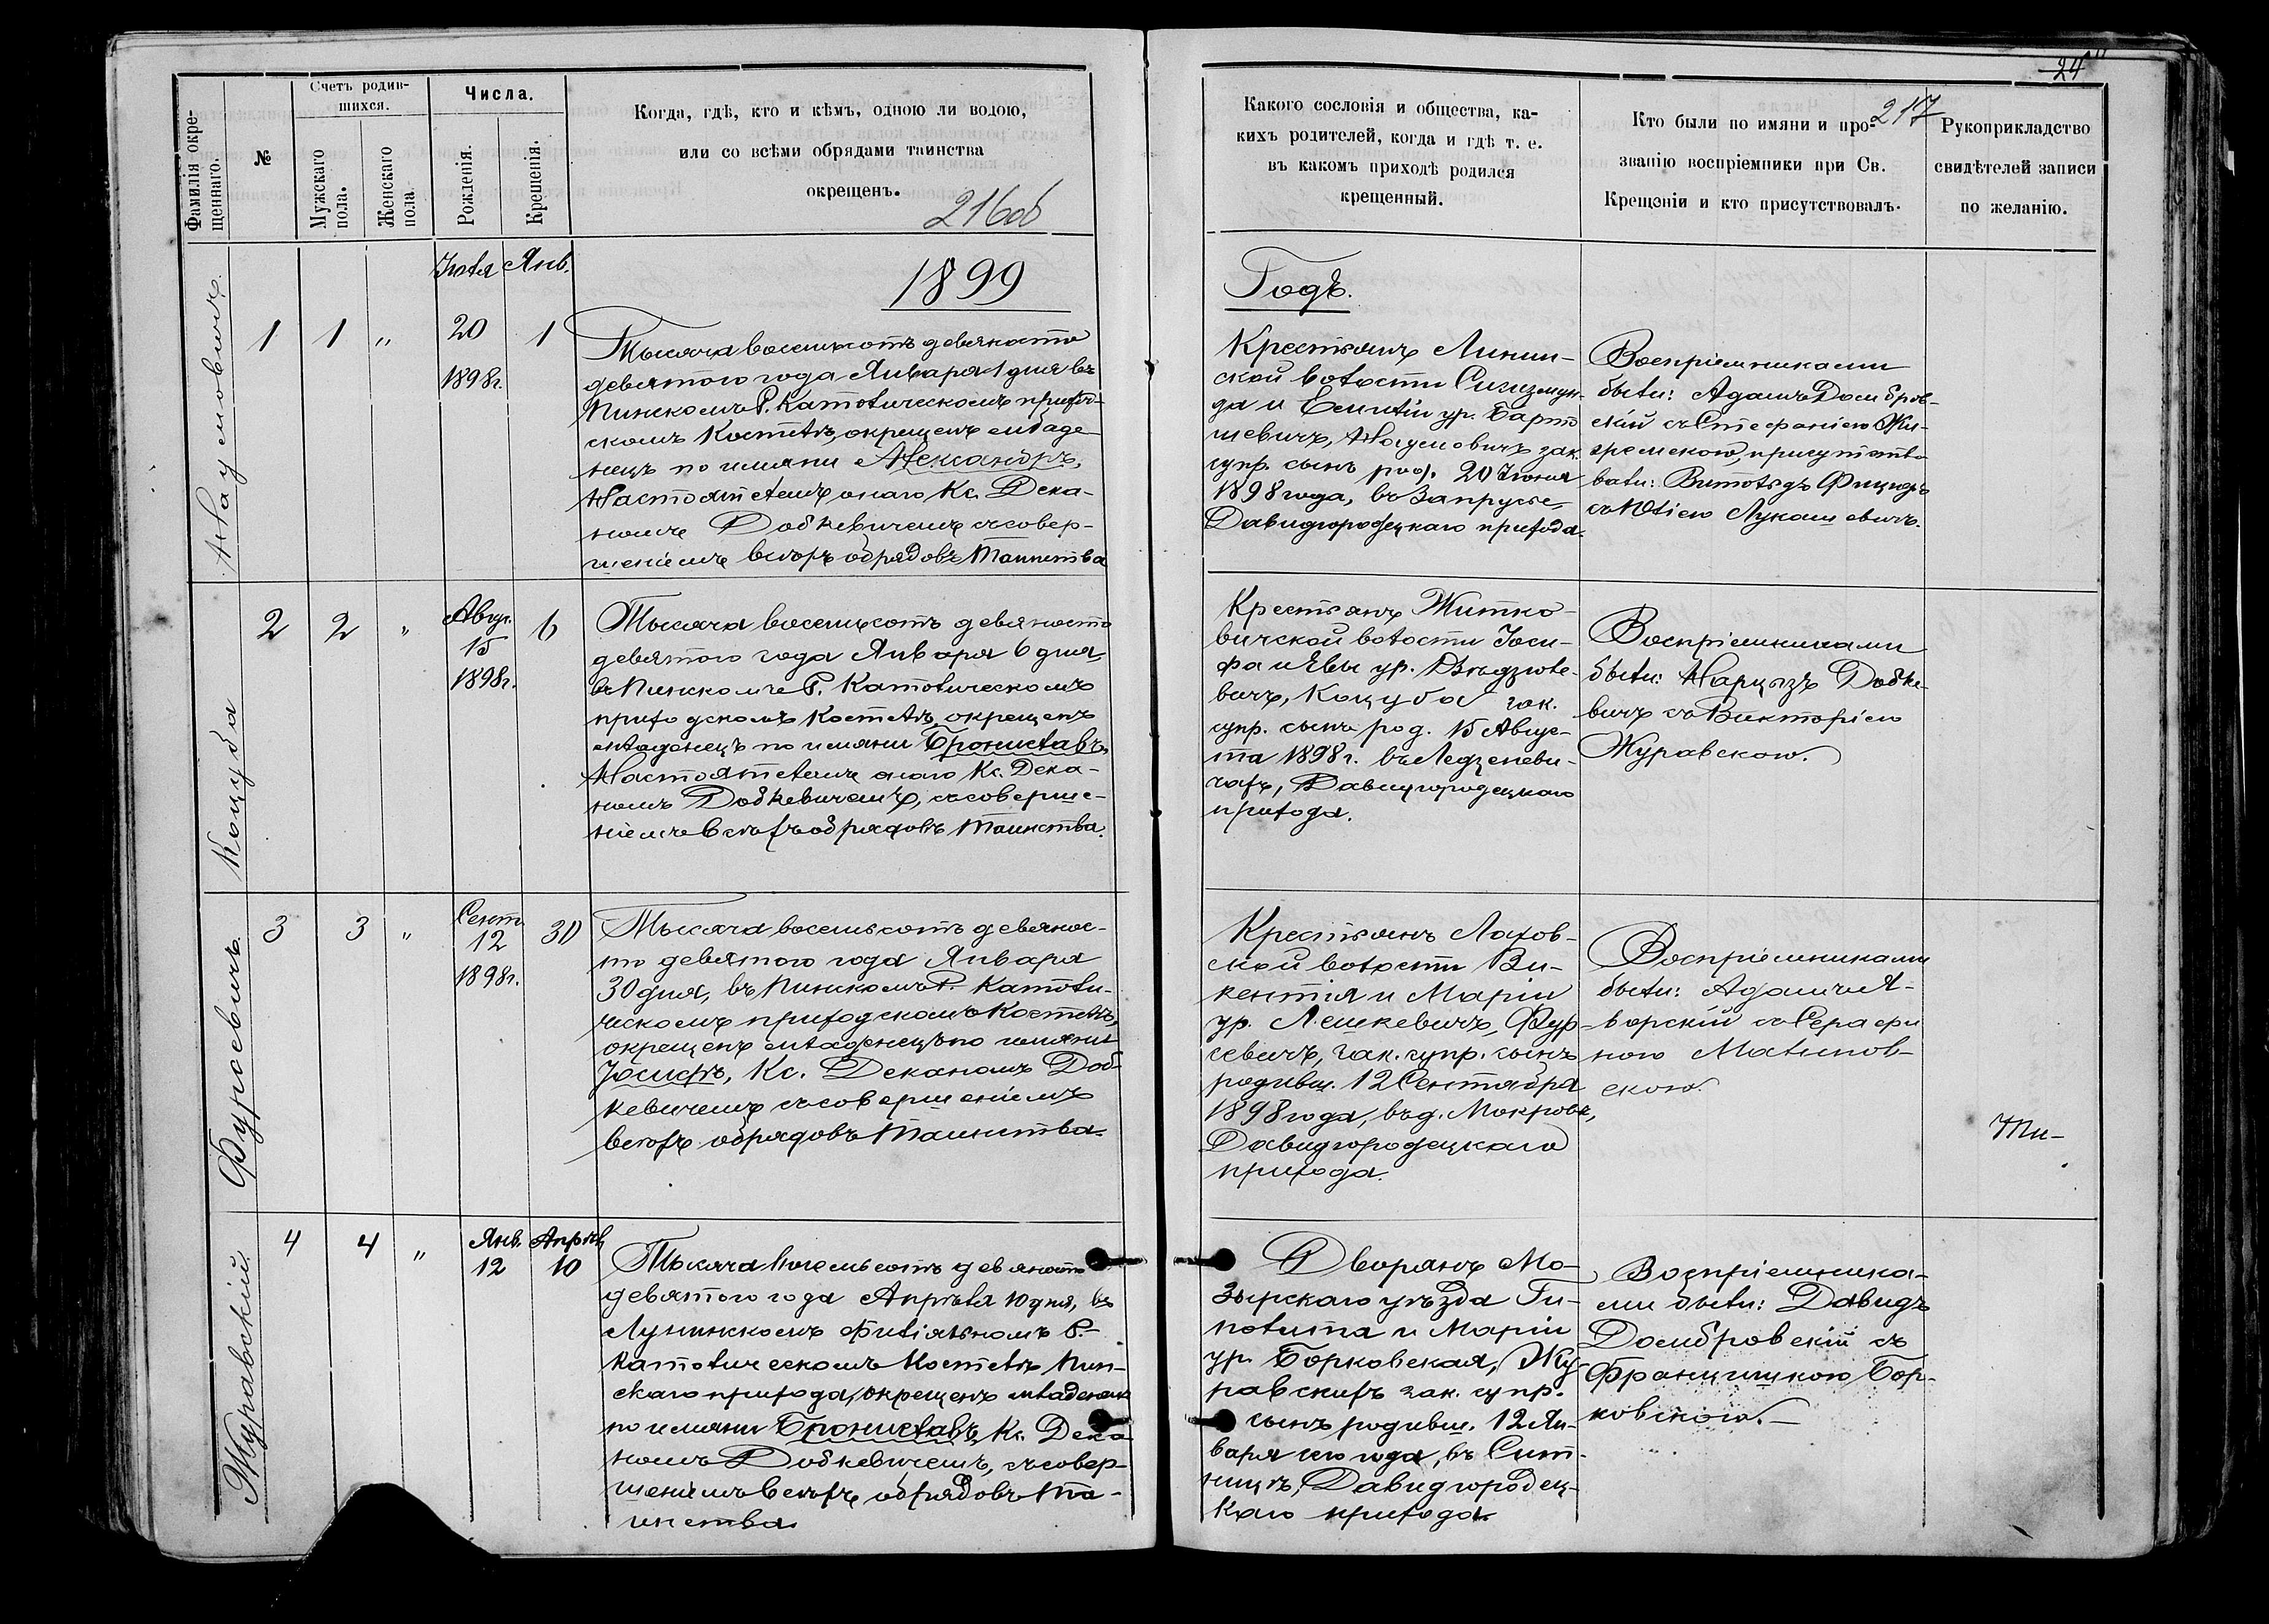 24
217
Фамилія окре-
щеннаго.
№
Счетъ родив-
шихся.
Мужскаго
пола.
Женскаго
пола
Числа.
Рожденія.
Крещенія.
Когда, гдѣ, кто и кѣмъ, одною ли водою,
или со всѣми обрядами таинства
окрещенъ.
216об
Какого сословія и общества, ка-
кихъ родителей, когда и гдѣ т. е.
въ какомъ приходѣ родился
крещенный.
Кто были по имяни и про-
званію воспріемники при Св.
Крещеніи и кто присутствовалъ.
Рукоприкладство
свидѣтелей записи
по желанію.
1899
Годъ.
Наумовичъ
1
1
"
20
1898г.
Янв.
1
Тысяча восемьсотъ девяносто
девятого года Января 1 дня въ
Пинскомъ Р. Католическомъ приход-
скомъ Костелѣ, окрещенъ младе-
нецъ по имяни Александръ,
Настоятелемъ онаго Кс. Дека-
номъ Добкевичемъ съ совер-
шеніемъ всѣхъ обрядовъ Таинства
Крестьянъ Лунин-
ской волости Сигизмун-
да и Емиліи ур. Барто
шевичъ, Наумовичъ зак.
супр. сынъ род. 20 Іюня
1898 года, въ Запрусье,
Давидгородецкаго прихода.
Воспріемниками
были: Адамъ Домбров-
скій съ Стефаніею
присутство
вали: Витольдъ
съ Юліею Лукашевичъ.
Коцуба
2
2
"
Авгус.
15
1898г.
6
Тысяча восемьсотъ девяносто
девятого года Января 6 дня,
въ Пинскомъ Р. Католическомъ
приходскомъ Костелѣ, окрещенъ
младенецъ по имяни Брониславъ,
Настоятелемъ онаго Кс. Дека-
номъ Добкевичемъ, съ соверше-
ніемъ всѣхъ обрядовъ Таинства.
Крестьянъ Житко-
вичской волости Іоси-
фа и Евы ур.
вичъ, Коцуба зак.
супр. сынъ род. 15 Авгус-
та 1898 г. въ
чахъ, Давидгородецкаго
прихода.
Воспріемниками
были: Нарцызъ Добке-
вичъ съ Викторіею
Журавскою.
Фурсевичъ
3
3
"
Сент.
12
1898г.
30
Тысяча восемьсотъ девянос-
то девятого года Января
30 дня, въ Пинскомъ Р. Католи-
ческомъ приходскомъ Костелѣ,
окрещенъ младенецъ по имяни
Іосифъ, Кс. Деканомъ Доб-
кевичемъ съ совершеніемъ
всѣхъ обрядовъ Таинства.
Крестьянъ Лахов-
ской волости Ви-
кентія и Маріи
ур. Лешкевичъ, Фур-
севичъ, зак. супр. сынъ
родивш. 12 Сентября
1898 года, въ д. Мокровѣ,
Давидгородецкаго
прихода.
Воспріемниками
были: Адамъ Я-
ворскій съ Серафи
ною Малинов-
скою.
Журавскій
4
4
"
Янв.
12
Апрѣл.
10
Тысяча восемьсотъ девяносто
девятого года Апрѣля 10 дня, въ
Лунинскомъ филіяльномъ Р.-
Католическомъ Костелѣ Пин-
скаго прихода, окрещенъ младенецъ
по имяни Брониславъ, Кс. Дека-
номъ Добкевичемъ, съ совер-
шеніемъ всѣхъ обрядовъ Та-
инства
Дворянъ Мо-
зырскаго уѣзда Ги-
полита и Маріи
ур. Борковская, Жу
равскихъ зак. супр.
сынъ родивш. 12 Ян-
варя сего года, въ Сит-
ницѣ, Давидгородец-
каго прихода
Воспріемника-
ми были: Давидъ
Домбровскій съ
Францишкою Бор-
ковскою.